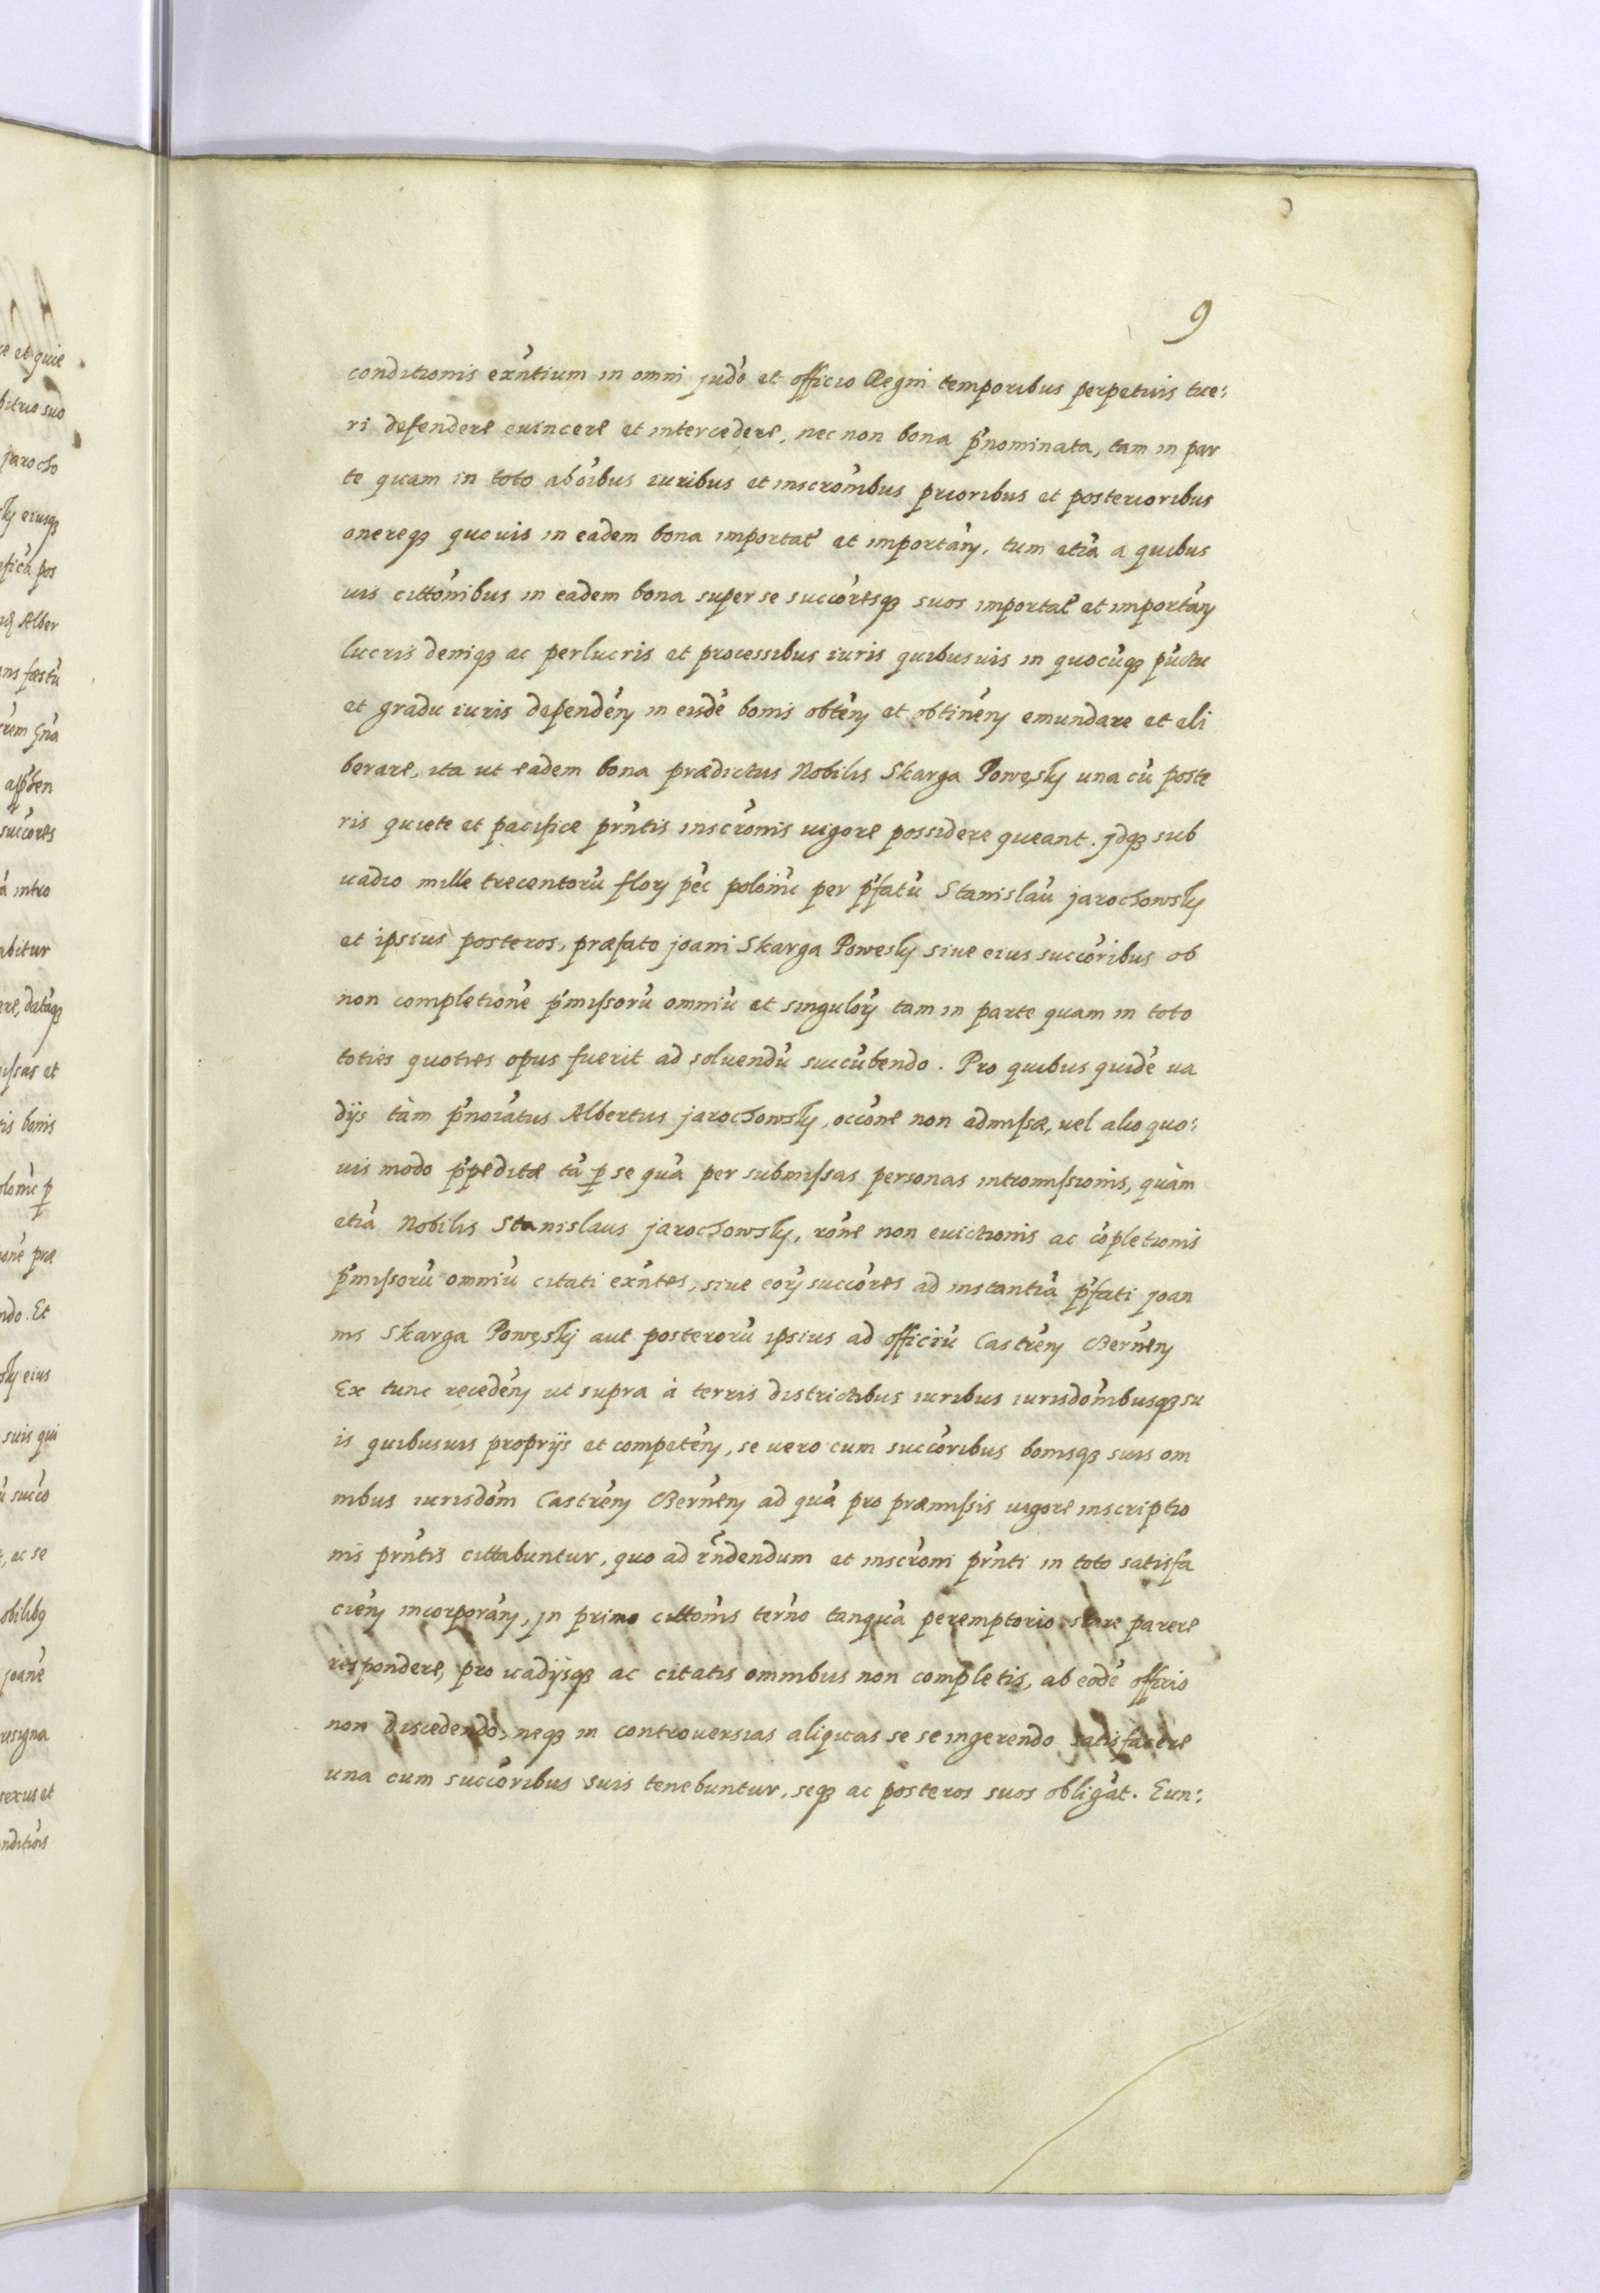 9
conditionis exn̄tium in omni judo et officio Regni temporibus perpetuis tue:
ri defendere euincere et intercedere, nec non bona p'nominata, tam in par
te quam in toto ab oĩbus iuribus et inscrom̃ibus prioribus et posterioribus
onereq3 quouis in eadem bona importat' et importan̄, tum etiā a quibus
uis cittōnibus in eadem bona super se succoresq3 suos importat' et importan̄
lucris deniq3 ac perlucris et processibus iuris quibusuis in quocūq3 pūctu
et gradu iuris dependēn in eisdē bonis obtēn et obtinēn emundare et eli
berare, ita ut eadem bona prædictus Nobilis Skarga Powęsky una cū poste
ris quiete et pacifice prn̄tis inscrōnis uigore possidere queant. jdq3 sub
uadio mille trecentorū flor̄ pec̄ polōnic per p'fatū Stanislaū jarochowsky
et ipsius posteros, præfato joani Skarga Powesky siue eius succōribus ob
non completionē p'missorū omniū et singulor̄ tam in parte quam in toto
toties quoties opus fuerit ad soluendū succūbendo. Pro quibus quidē ua
dijs tàm p'noīatus Albertus jarochowsky, occōne non admissæ, uel alio quo:
uis modo p'peditæ tā p se quā per submissas personas intromissionis, quàm
etiā Nobilis Stanislaus jarochowsky, rōne non euictionis ac cōpletionis
p'missorū omniū citati exn̄tes, siue eor̄ succōres ad instantiā p'fati joan
nis Skarga Powęskj aut posterorū ipsius ad officiū Castrēn Bernēn
Ex tunc recedēn ut supra à terris districtibus iuribus iurisdōnibusq3 su
is quibusuis proprijs et competēn, se uero cum succōribus bonisq3 suis om
nibus iurisdōni Castrēn Bernēn ad quā pro præmissis uigore inscriptio
nis prn̄tis cittabuntur, quo ad rn̄dendum et inscrōni prn̄ti in toto satisfa
ciēn incorporān, jn primo cittōnis ternō tanquā peremptorio stare parere
respondere, pro uadijsq3 ac citatis omnibus non completis, ab eodē officio
non discedendo, neq3 in controuersias aliquas se se ingerendo satisfacere
una cum succōribus suis tenebuntur, seq3 ac posteros suos obligāt. Eun: